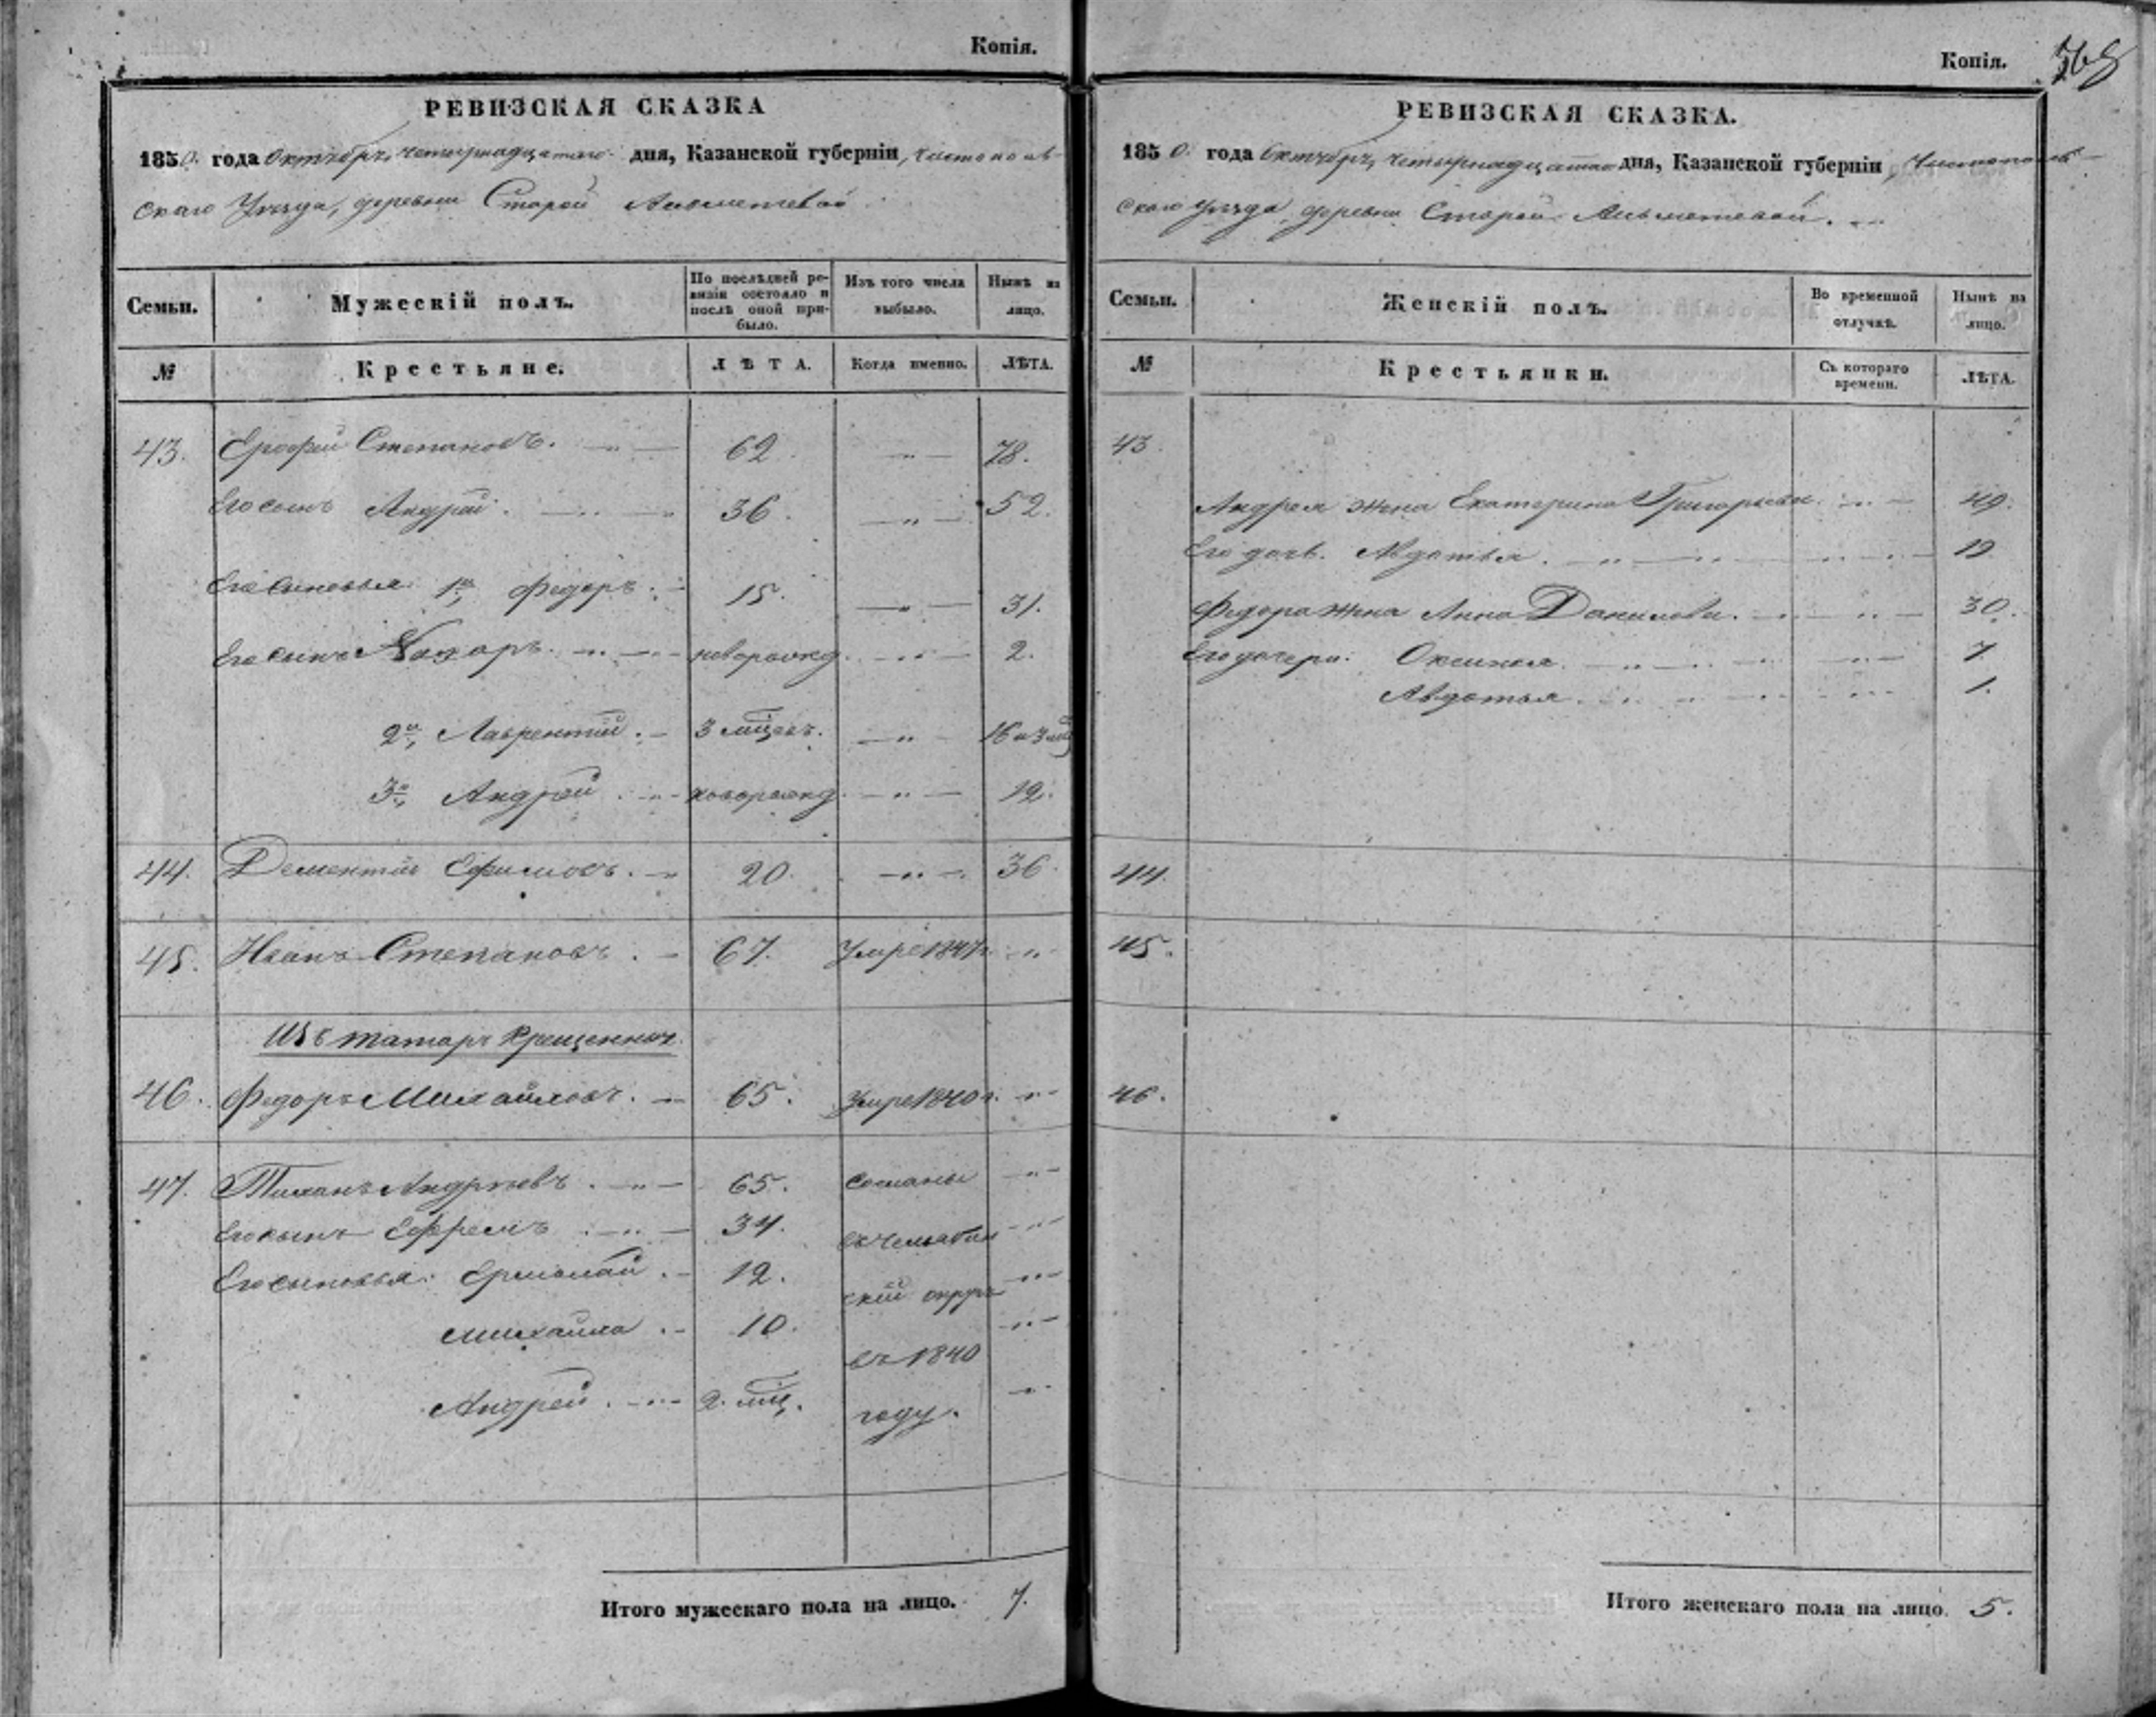 Копія.
РЕВИЗСКАЯ СКАЗКА
1850. года Октября четырнадцатаго дня, Казанской губерніи, Чистополь-
скаго Уѣзда, деревни Старой Альметевой
Семьи. Мужескій полъ. По послѣдней ре-визіи состояло и послѣ оной при-было. Изъ того числа выбыло. Нынѣ на лицо.
№ Крестьяне. ЛѢТА. Когда именно. ЛѢТА.
43. Ерофей Степановъ. 62. — „ — 78.
Его сынъ Андрей. 36. — „ — 52.
Его сыновья: 1й, Федоръ. 15. — „ — 31.
Его сынъ новорожд. — „ — 2.
2й, Лаврентій. 3 мѣсяц. — „ — 16 и 3 мѣ
3й, Андрей новорожд. — „ — 12.
44. Дементій Ефимовъ. 20. — „ — 36.
45. Иванъ Степановъ. 67. Умре 1847 г. „
Изъ татаръ крещенныхъ.
46. Федоръ Михайловъ. 65. Умре 1840 г. „
47. Андреевъ. 65. Сосланы „
Его сынъ Ефремъ 34. въ Челябин „
Его сыновья: Ермолай. 12. скій округъ „
Михайла 10. въ 1840 „
Андрей. 2. мѣц. году. „
Итого мужескаго пола на лицо. 7.
Копія.
РЕВИЗСКАЯ СКАЗКА.
1850. года Октября, четырнадцатаго дня, Казанской губерніи, Чистополь-
скаго уѣзда деревни Старой Альметевой.
Семьи. Женскій полъ. Во временной отлучкѣ. Нынѣ на лицо.
№ Крестьянки. Съ котораго времени. ЛѢТА.
43.
Андрея жена Екатерина Григорьева. 49.
Его дочь. Авдотья. 19
Федора жена Анна Данилова. 30.
Его дочери: Оксинья. 7.
Авдотья. 1.
44.
45.
46.
Итого женскаго пола на лицо 5.